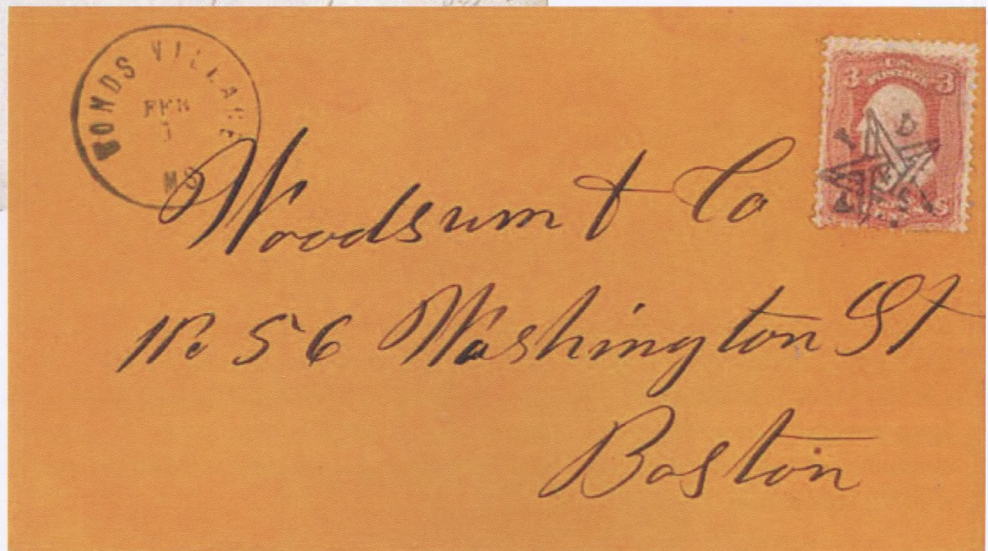 BONDS VILLAGE
FEB
1
MS
3 U.S. POSTAGE 3
Woodsum & Co
No 56 Washington St
Boston